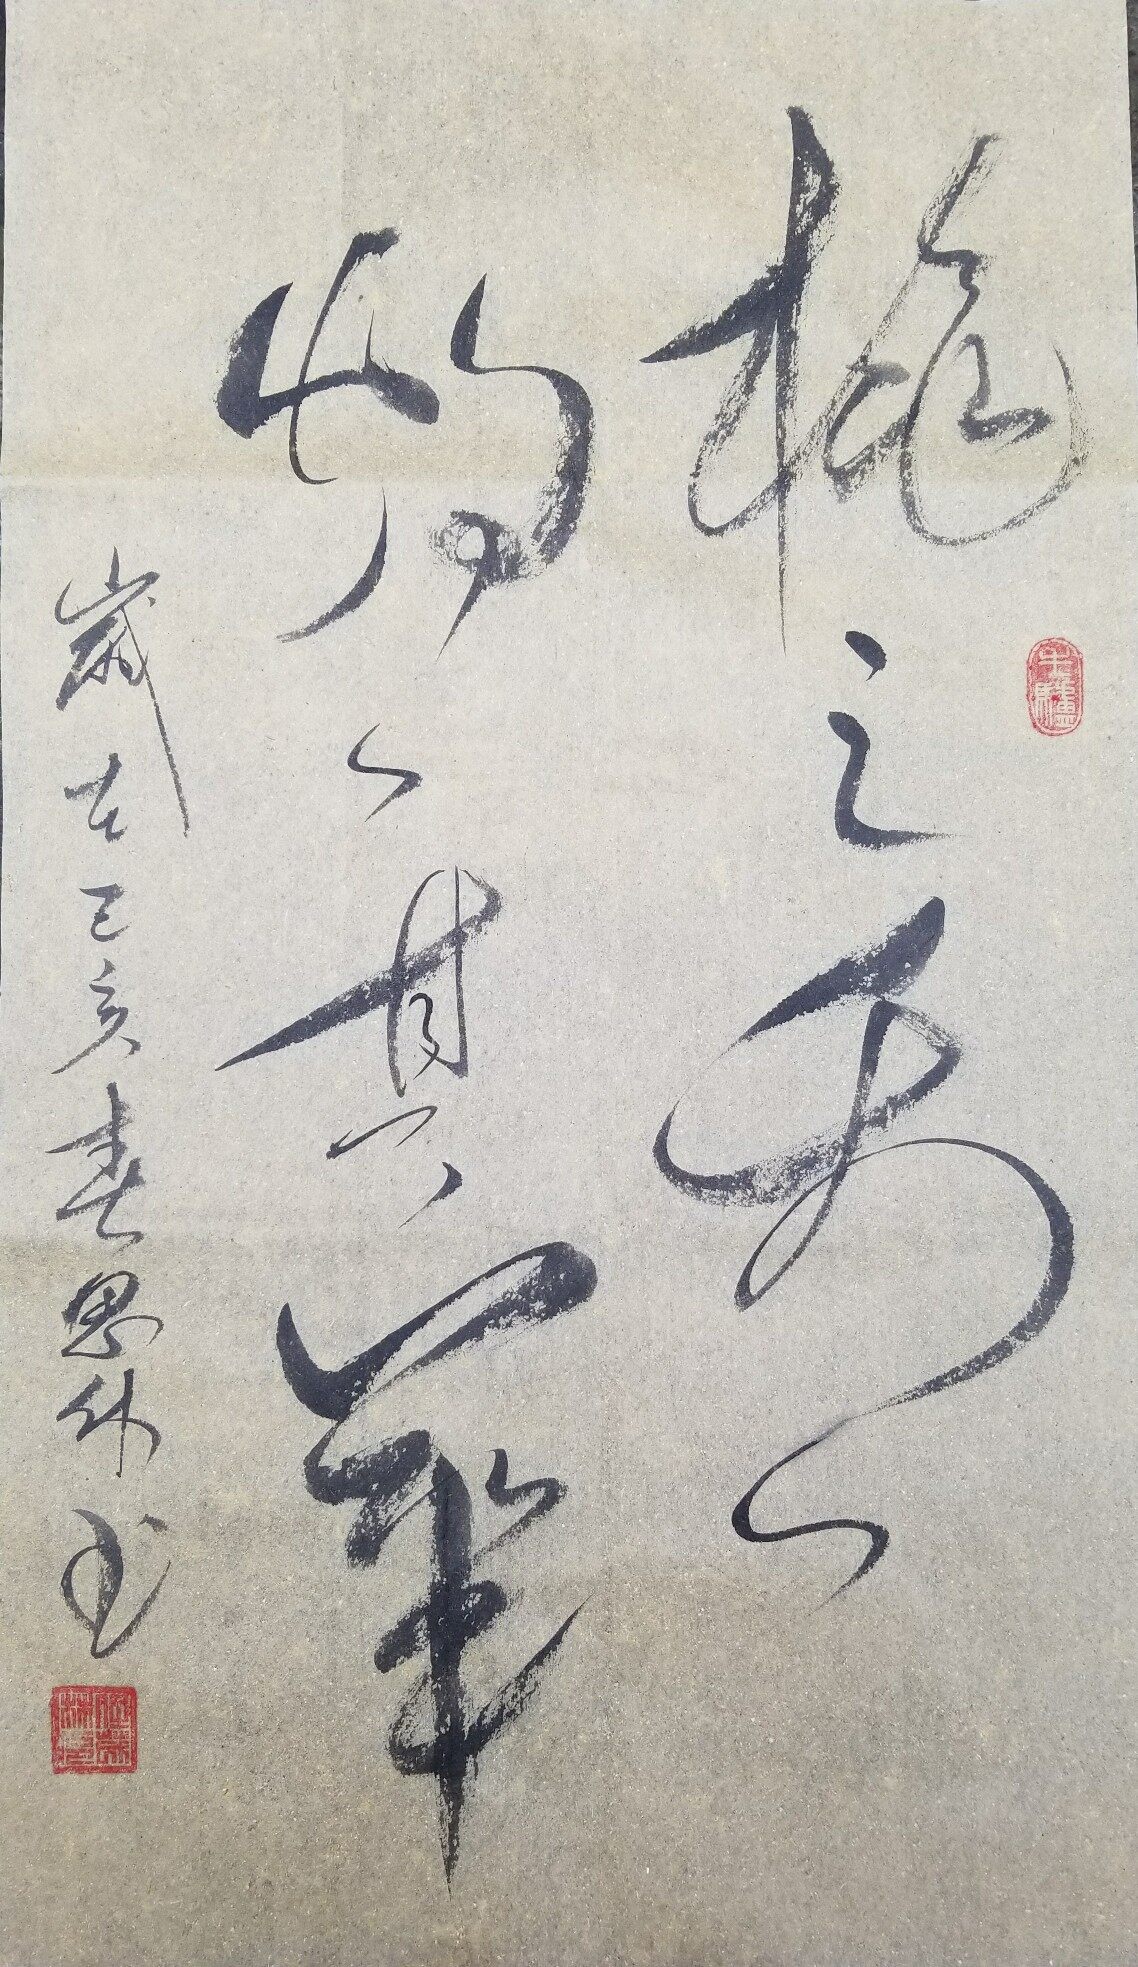 桃之夭夭
灼灼其華
歲在己亥春思休书